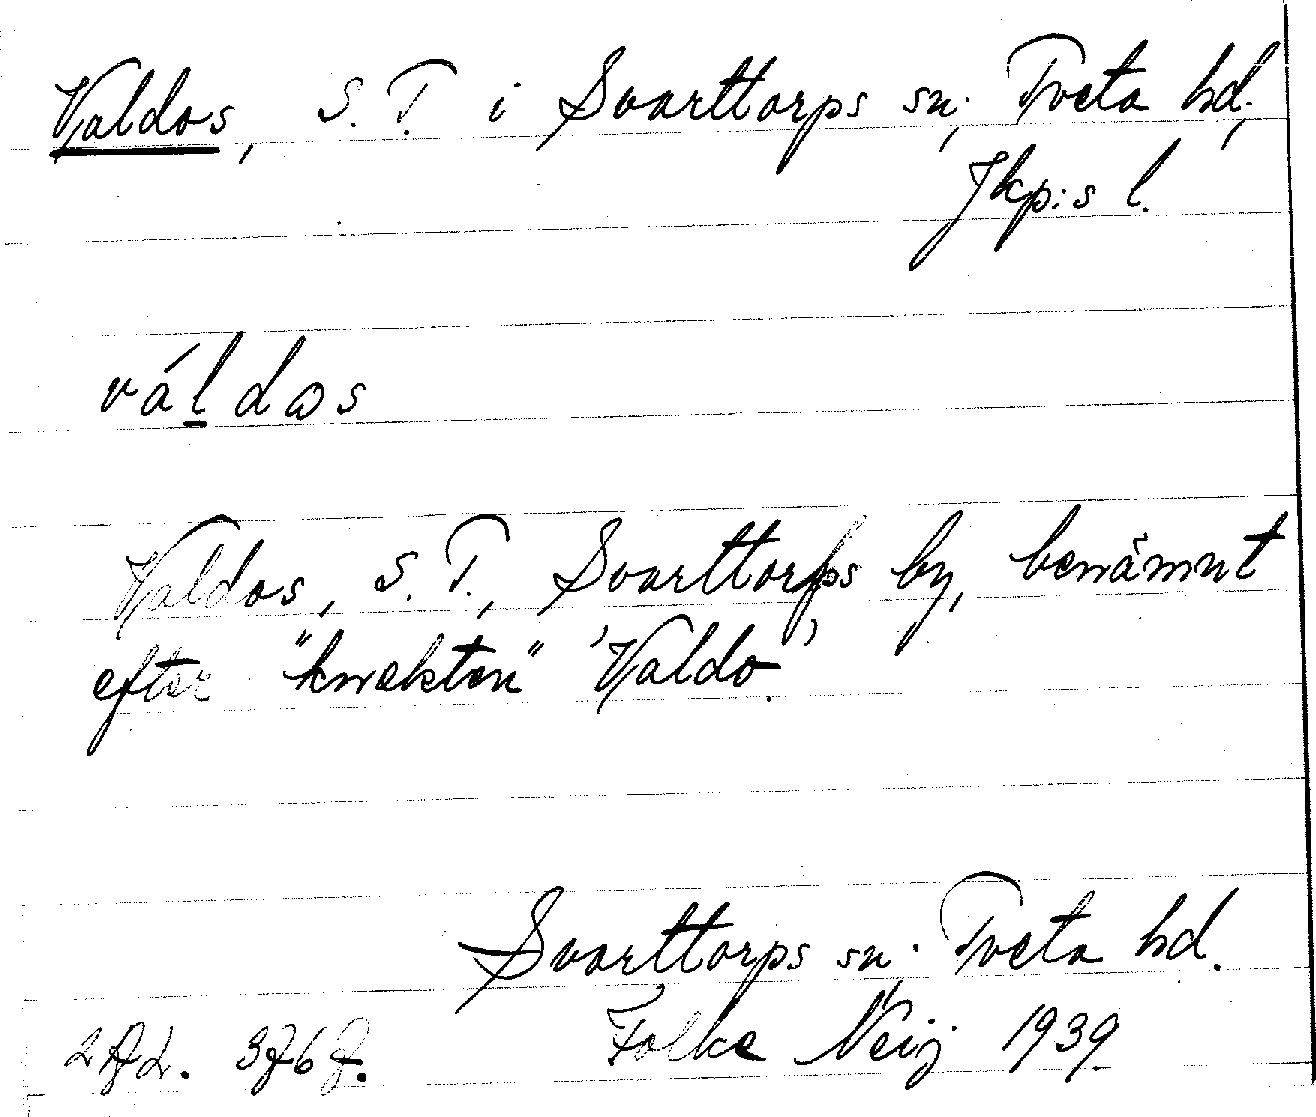 Valdos, S. T. i Svarttorps sn; Tveta hd,
Jkp:s l.
váldos
Valdos, S. T., Svarttorps by, benämnt
efter "knekten" 'Valdo.'
Svarttorps sn. Tveta hd.
Folke Neij 1939